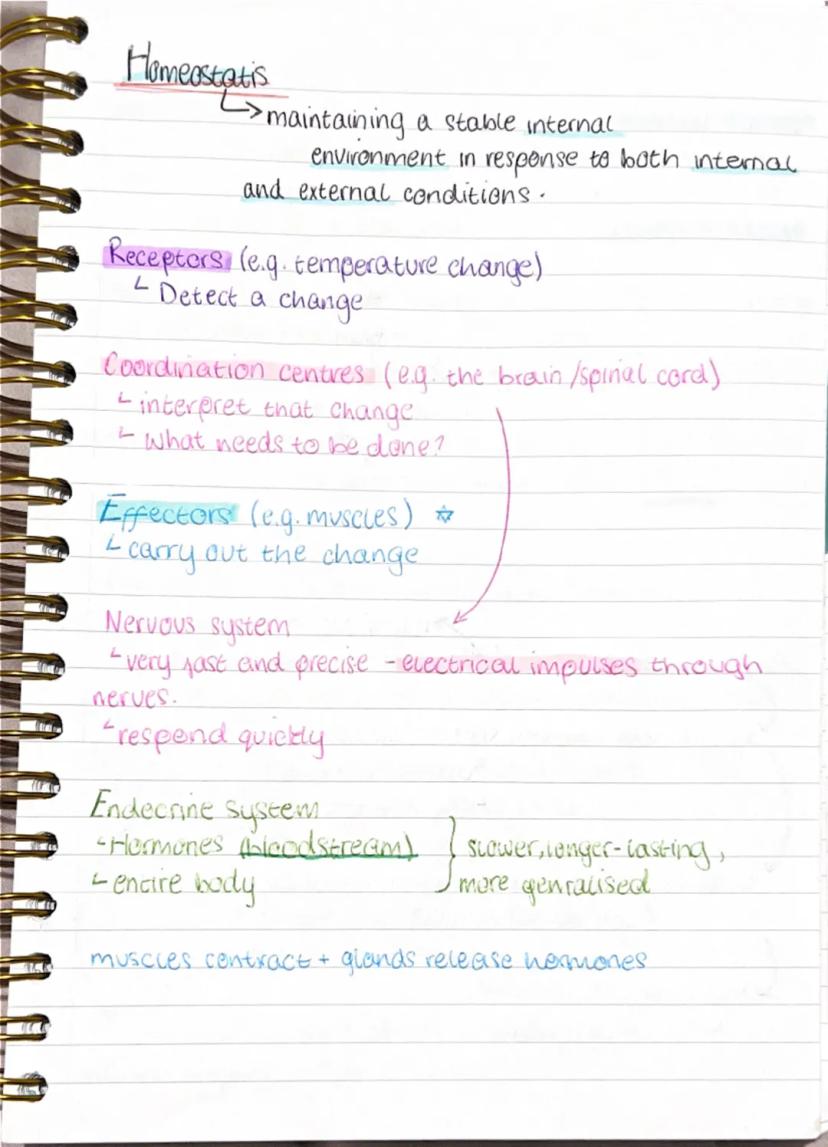 Homeostatis
↳ maintaining a stable internal
environment in response to both internal
and external conditions.
Receptors (e.g. temperature change)
↳ Detect a change
Coordination centres (e.g. the brain/spinal cord)
↳ interpret that change
↳ What needs to be done?
Effectors (e.g. muscles) ☆
↳ carry out the change
Nervous system
↳ very fast and precise - electrical impulses through
nerves.
↳ respond quickly
Endecrine system
↳ Hormones (bloodstream) } slower, longer-lasting,
↳ entire body } more genralised
muscles contract + glands release hormones